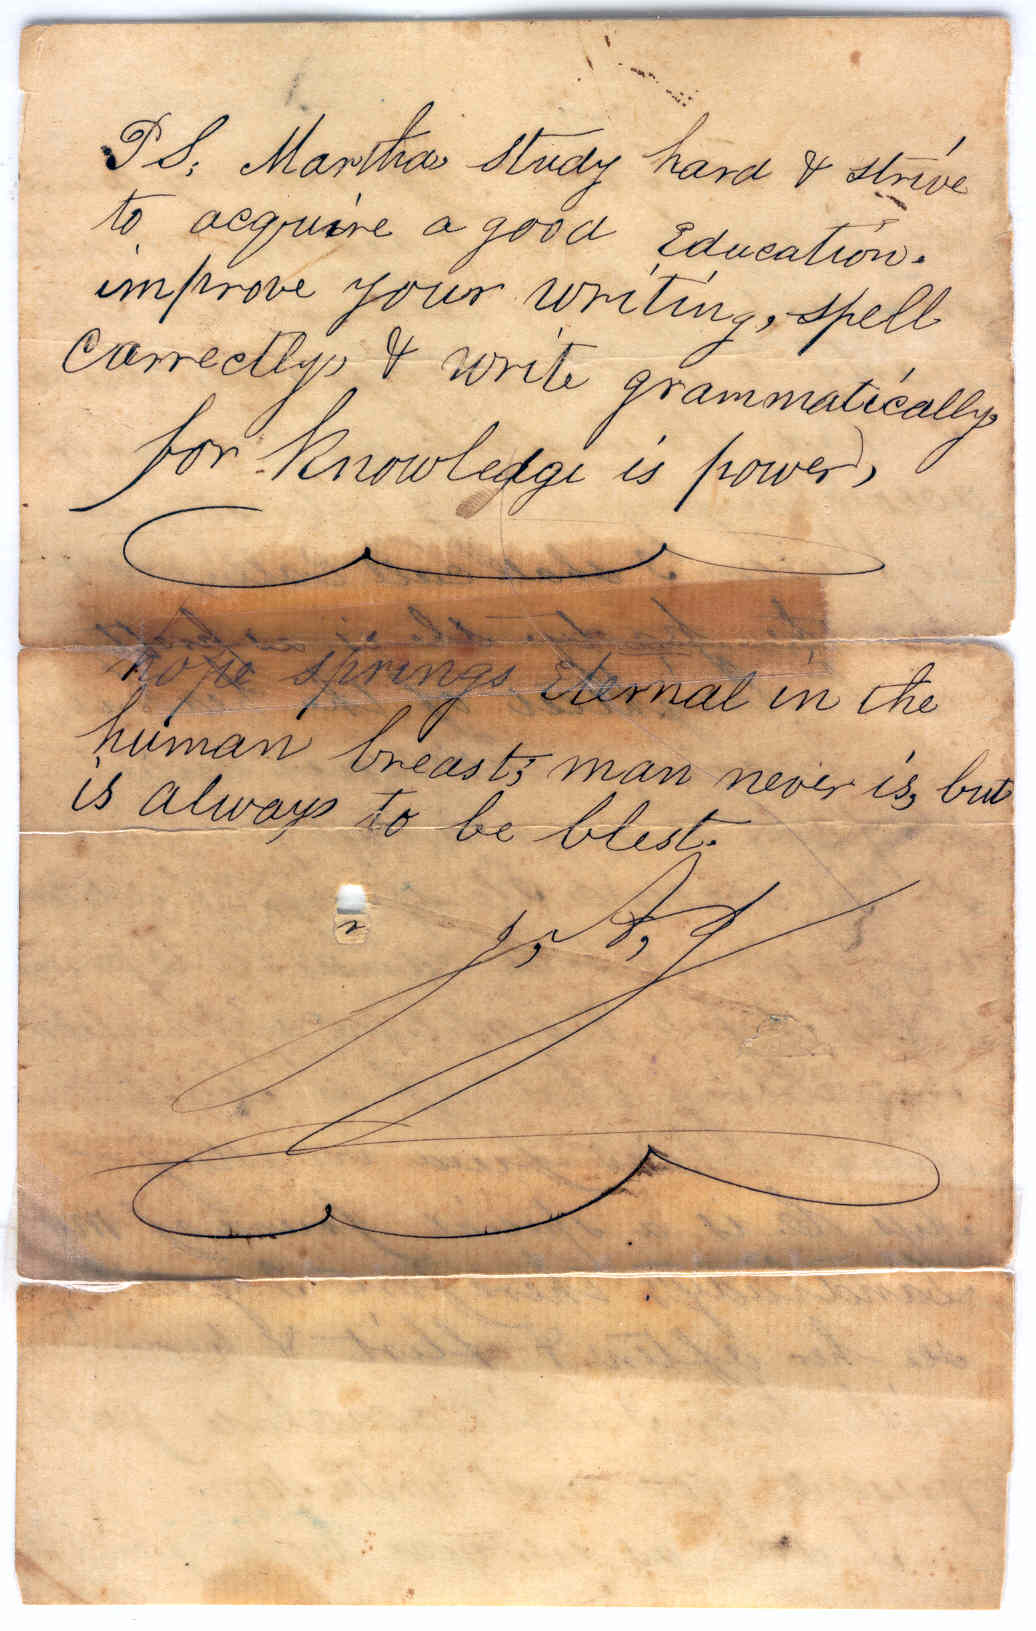 P S; Martha study hard & strive
to acquire a good Education.
improve your writing, spell
Correctly, & write grammatically
for Knowledge is power,
hope springs Eternal in the
human breast; man never is, but
is always to be blest.
J, A, J